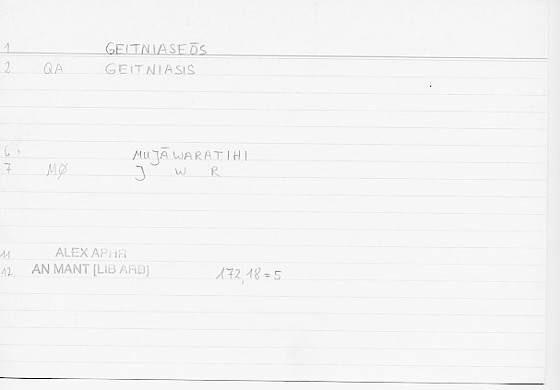 1 GEITNIASEŌS
2 QA GEITNIASIS
6 MUJĀWARATIHI
7 MØ J W R
11 ALEX APHR
12 AN MANT [LIB ARB] 172,18 = 5